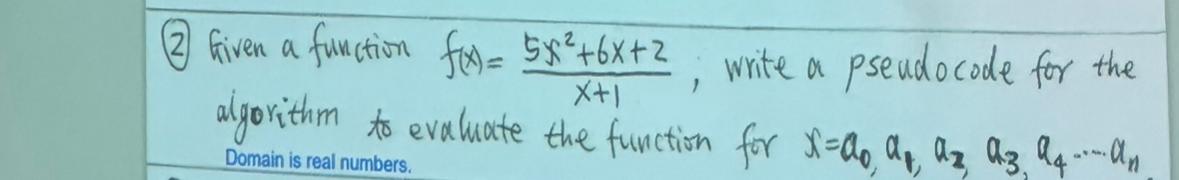 ② Given a function f(x) = (5x²+6x+2)/(x+1), write a pseudocode for the
algorithm to evaluate the function for x=a₀, a₁, a₂, a₃, a₄ ---- aₙ
Domain is real numbers.